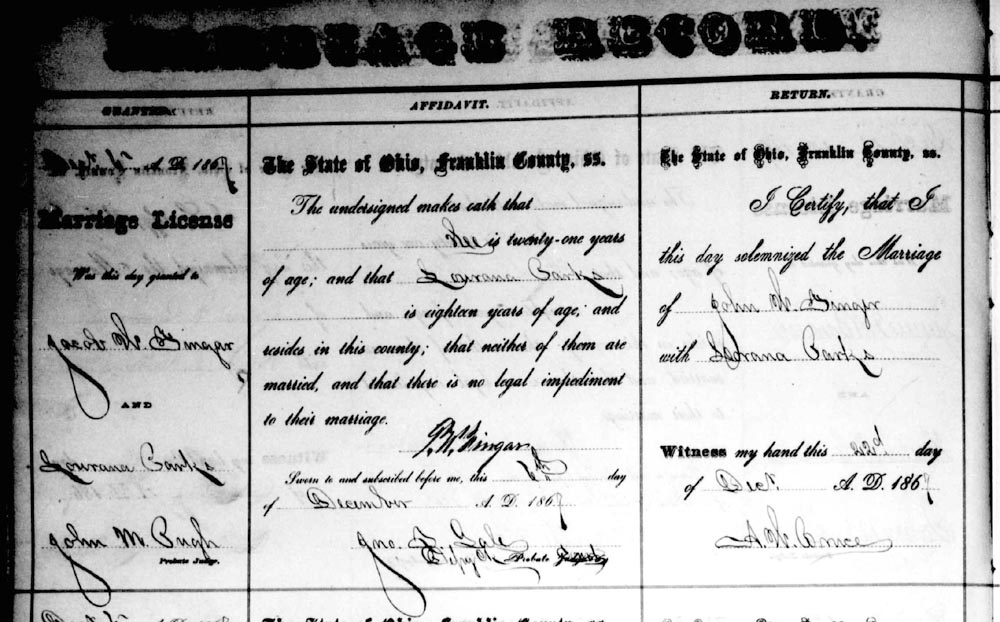 MARRIAGE RECORD.
GRANTED.
A. D. 1867
Marriage License
Was this day granted to
Jacob W. Gingar
AND
Lourana Parks
John M. Pugh
Probate Judge.
AFFIDAVIT.
The State of Ohio, Franklin County, ss.
The undersigned makes oath that
he is twenty-one years
of age; and that Lourana Parks
is eighteen years of age; and
resides in this county; that neither of them are
married, and that there is no legal impediment
to their marriage.
J. W. Gingar
Sworn to and subscribed before me, this day
of December A. D. 1867
Jno. Gale
Depty Probate Judge
RETURN.
The State of Ohio, Franklin County, ss.
I Certify, that I
this day solemnized the Marriage
of John W. Ginger
with Lorana Parks
Witness my hand this 22d day
of Dect. A. D. 1867
A. W.
The State of Ohio, Franklin County, ss.